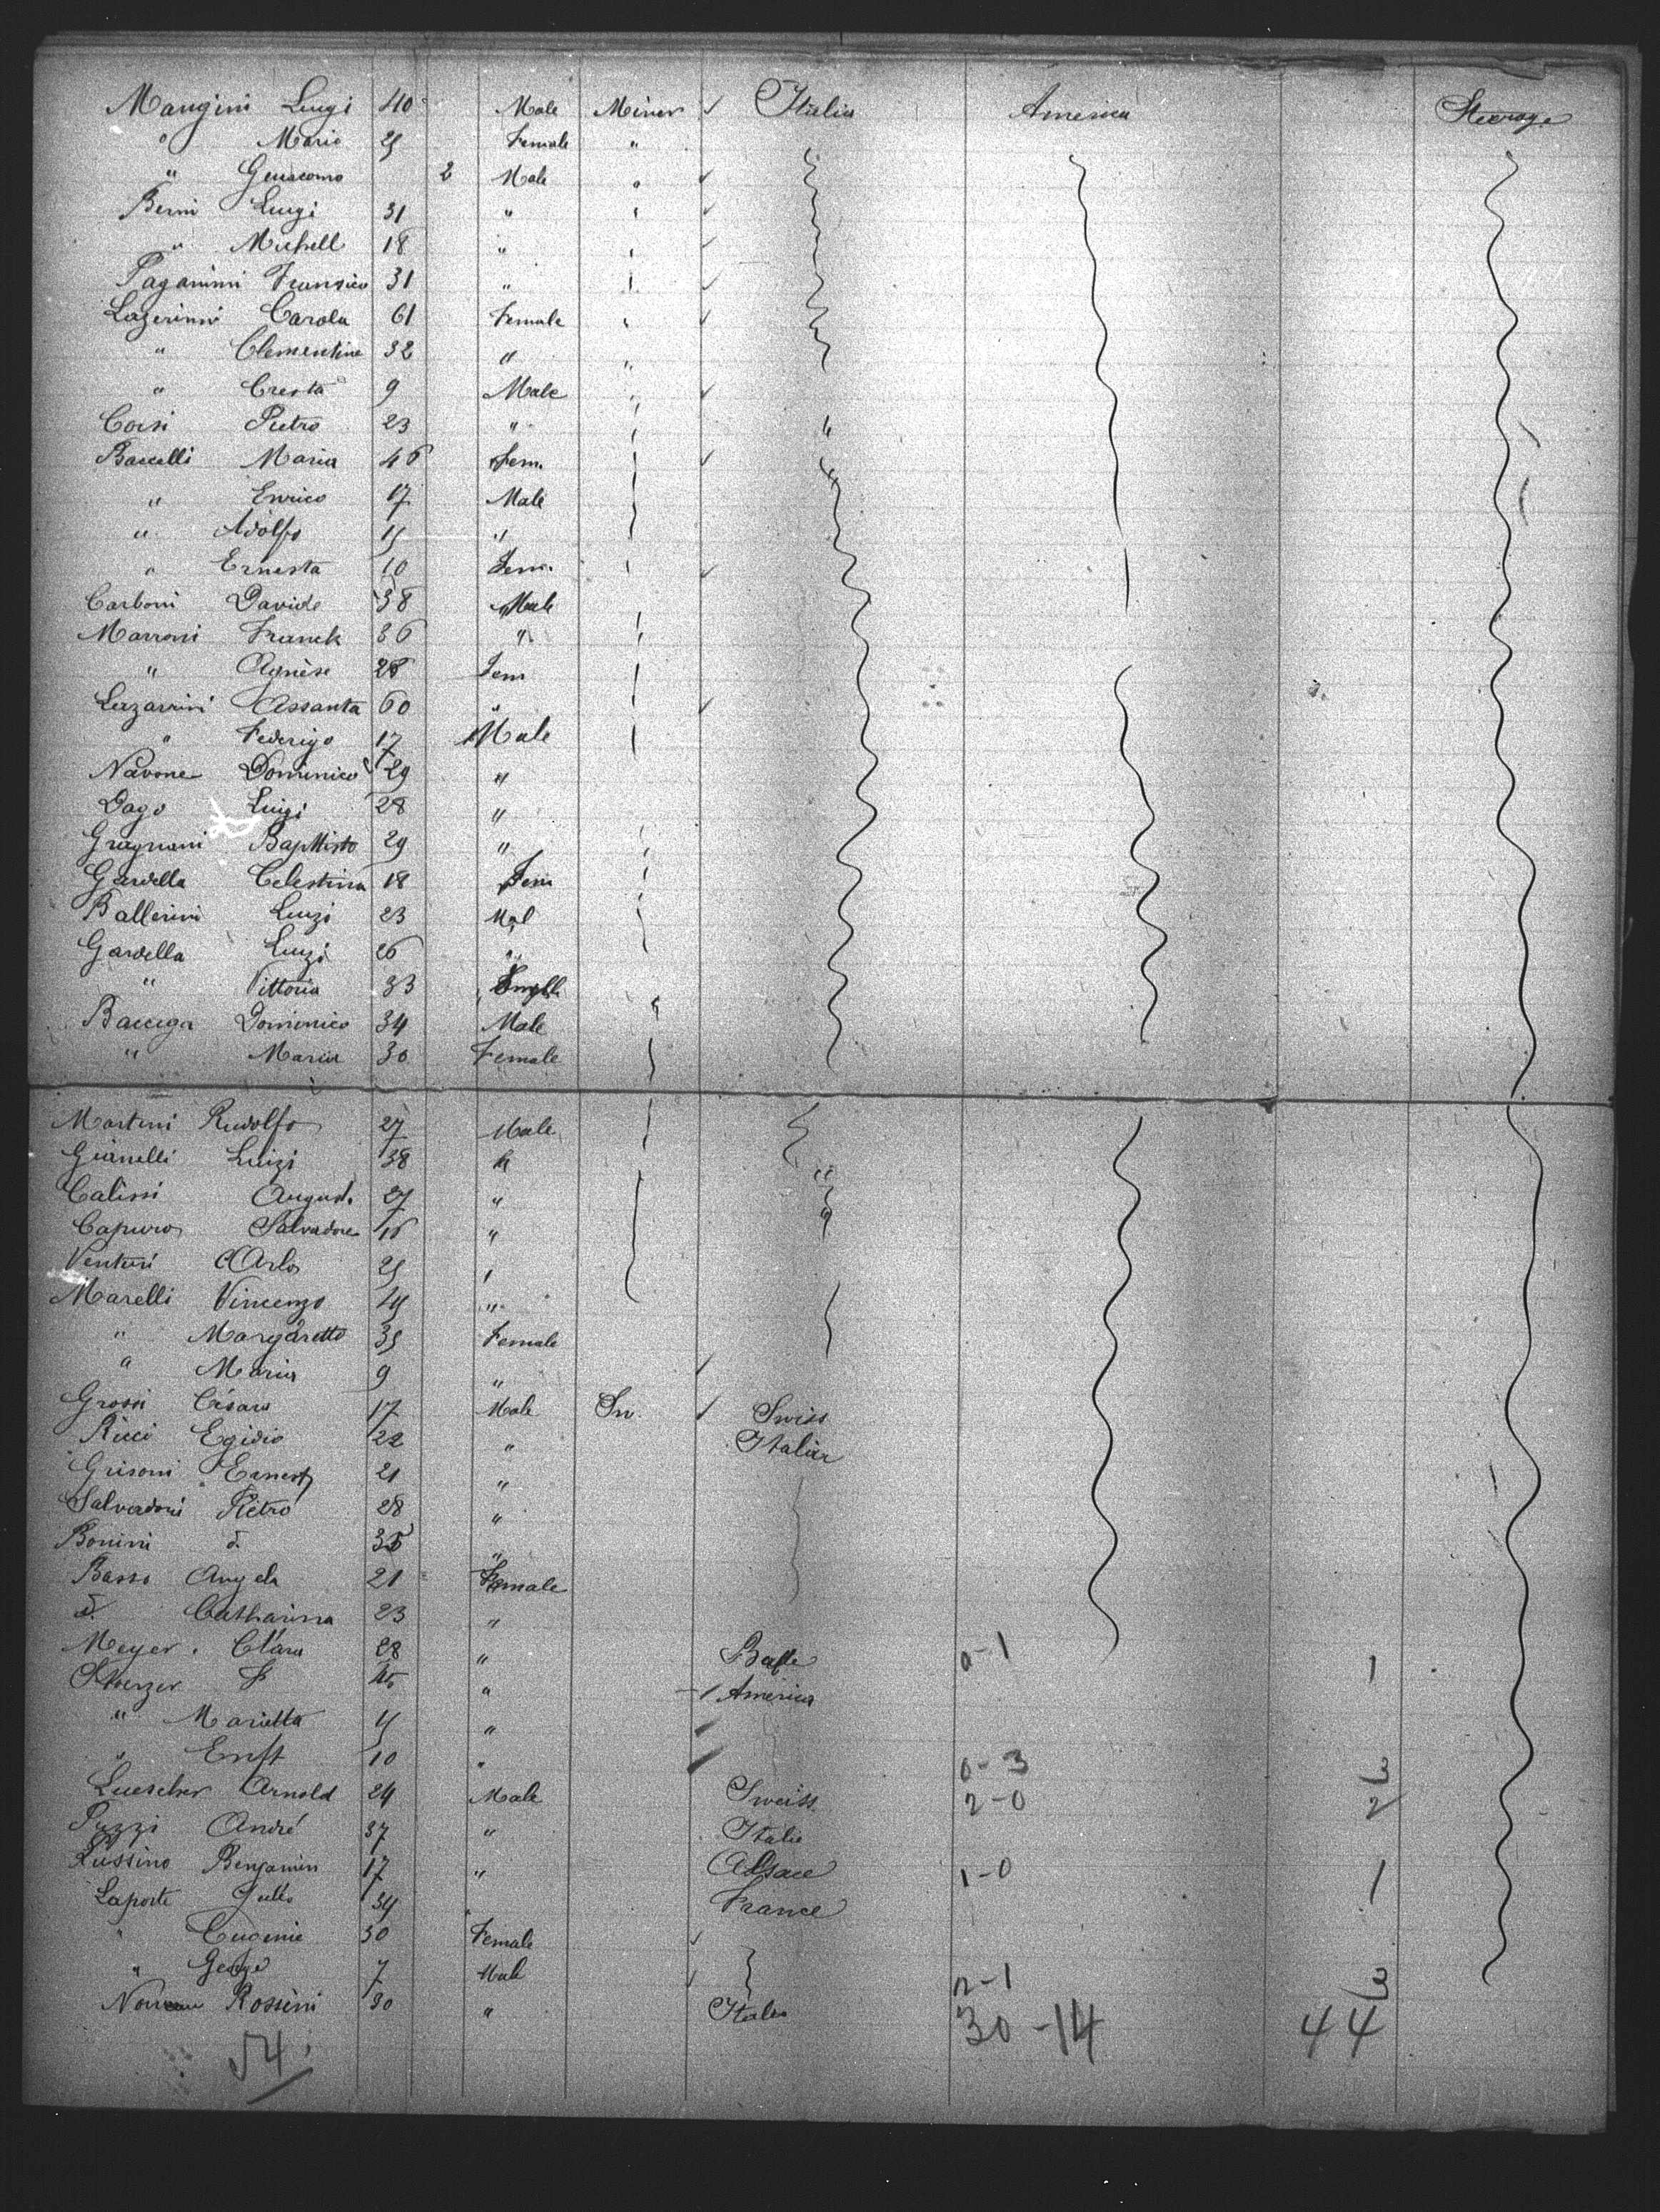 Mangini Luigi 40 Male Miner ✓ Italia America Steerage
" Maria 25 Female "
" Giuacomo 2 Male " ✓
Berni Luigi 31 " " ✓
" Michell 18 " " ✓
Paganini Fransico 31 " " ✓
Lazerinni Carola 61 Female " ✓
" Clementine 32 " "
" Cresta 9 Male " ✓
Corsi Pietro 23 " " "
Baccelli Maria 46 Fem. ✓
" Enrico 17 Male
" Adolfo 15 "
" Ernesta 10 Fem. ✓
Carboni Davide 38 Male
Marroni Franck 36 "
" Agnèse 28 Fem
Lazarrini Assanta 60 " ✓
" Federigo 17 Male
Navone Dominico 29 "
Dago Luigi 28 "
Gragnani Baptisto 29 "
Gardella Celestina 18 Fem
Ballerini Luigi 23 Mal
Gardella Luigi 26 "
" Vittoria 33
Baccega Dominico 34 Male
" Maria 30 Female
Martini Rudolfo 27 Male
Gianelli Luigi 38 "
Calissi August. 27 "
Capuro Salvadore 16 "
Venturi Carlo 25 "
Marelli Vincenzo 49 "
" Margaretto 35 Female
" Maria 9 " ✓
Grossi Césare 17 Male Sw. ✓ Swiss
Ricci Egidio 22 " Italia
Grisoni Ernest 21 "
Salvadoni Pietro 28 "
Bonini d. 35 "
Basso Angela 21 Female
d. Catharina 23 "
Meyer Clara 28 " Basle 0-1 1
F " America
" Marietta "
" Ernst 10 " 0-3 3
Luescher Arnold 24 Male Sweiss 2-0 2
Pozzi André 37 " Italie
Lussino Benjamin 17 " Alsace 1-0 1
Laporte Jules 34 France
" Eugenie 30 Female ✓
" George 7 Male ✓ 2-1 3
Rossini 30 " Italia 30-14 44
54